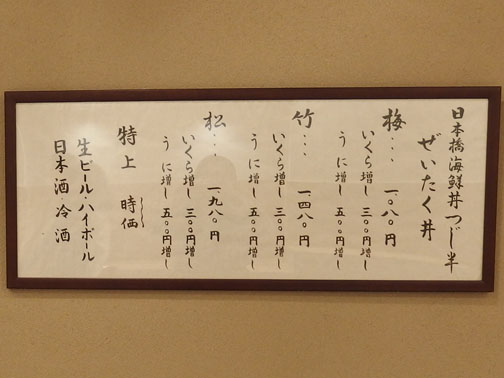 日本橋海鮮丼つじ半
ぜいたく丼
梅… 一、〇八〇円
いくら増し 三〇〇円増し
うに増し 五〇〇円増し
竹… 一、四八〇円
いくら増し 三〇〇円増し
うに増し 五〇〇円増し
松… 一、九八〇円
いくら増し 三〇〇円増し
うに増し 五〇〇円増し
特上 時価
生ビール・ハイボール
日本酒 冷酒